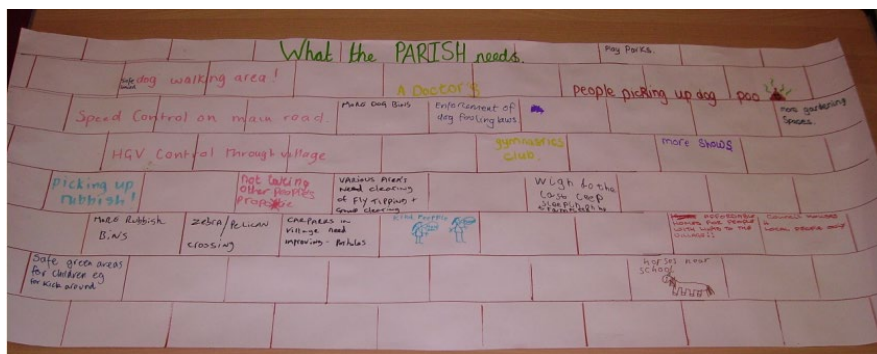 What the PARISH needs.
Play Parks.
safe dog walking area!
A Doctors
people picking up dog poo
Speed Control on main road
More Dog Bins
Enforcement of
dog fouling laws
more gardening
Spaces.
HGV Control Through village
gymnastics
club.
more Shows
Picking up
rubbish!
not taking
other peoples
VARIOUS Area's
Need clearing
of Fly Tipping +
More Rubbish
Bins
Zebra/Pelican
crossing
CARPARKS in
village need
improving - Potholes
Kind People
AFFORDABLE
HOMES FOR PEOPLE
WITH LINKS TO THE
VILLAGE!!
COUNCIL HOUSES
LOCAL PEOPLE ONLY
Safe green areas
for children eg
for kick around
horses near
school